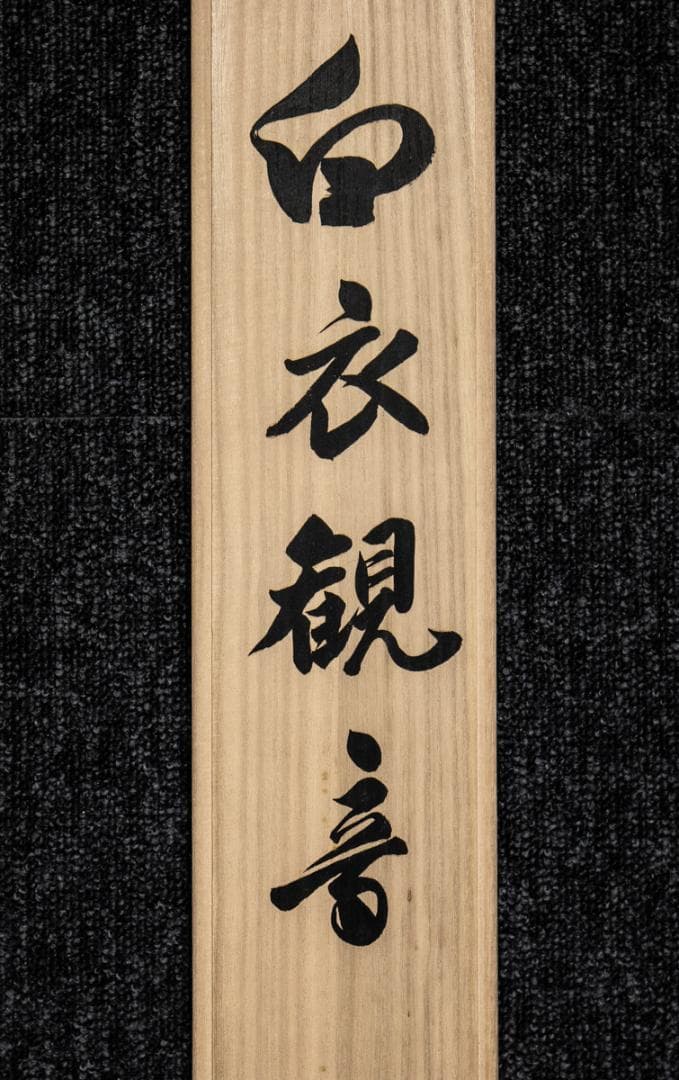 白衣観音